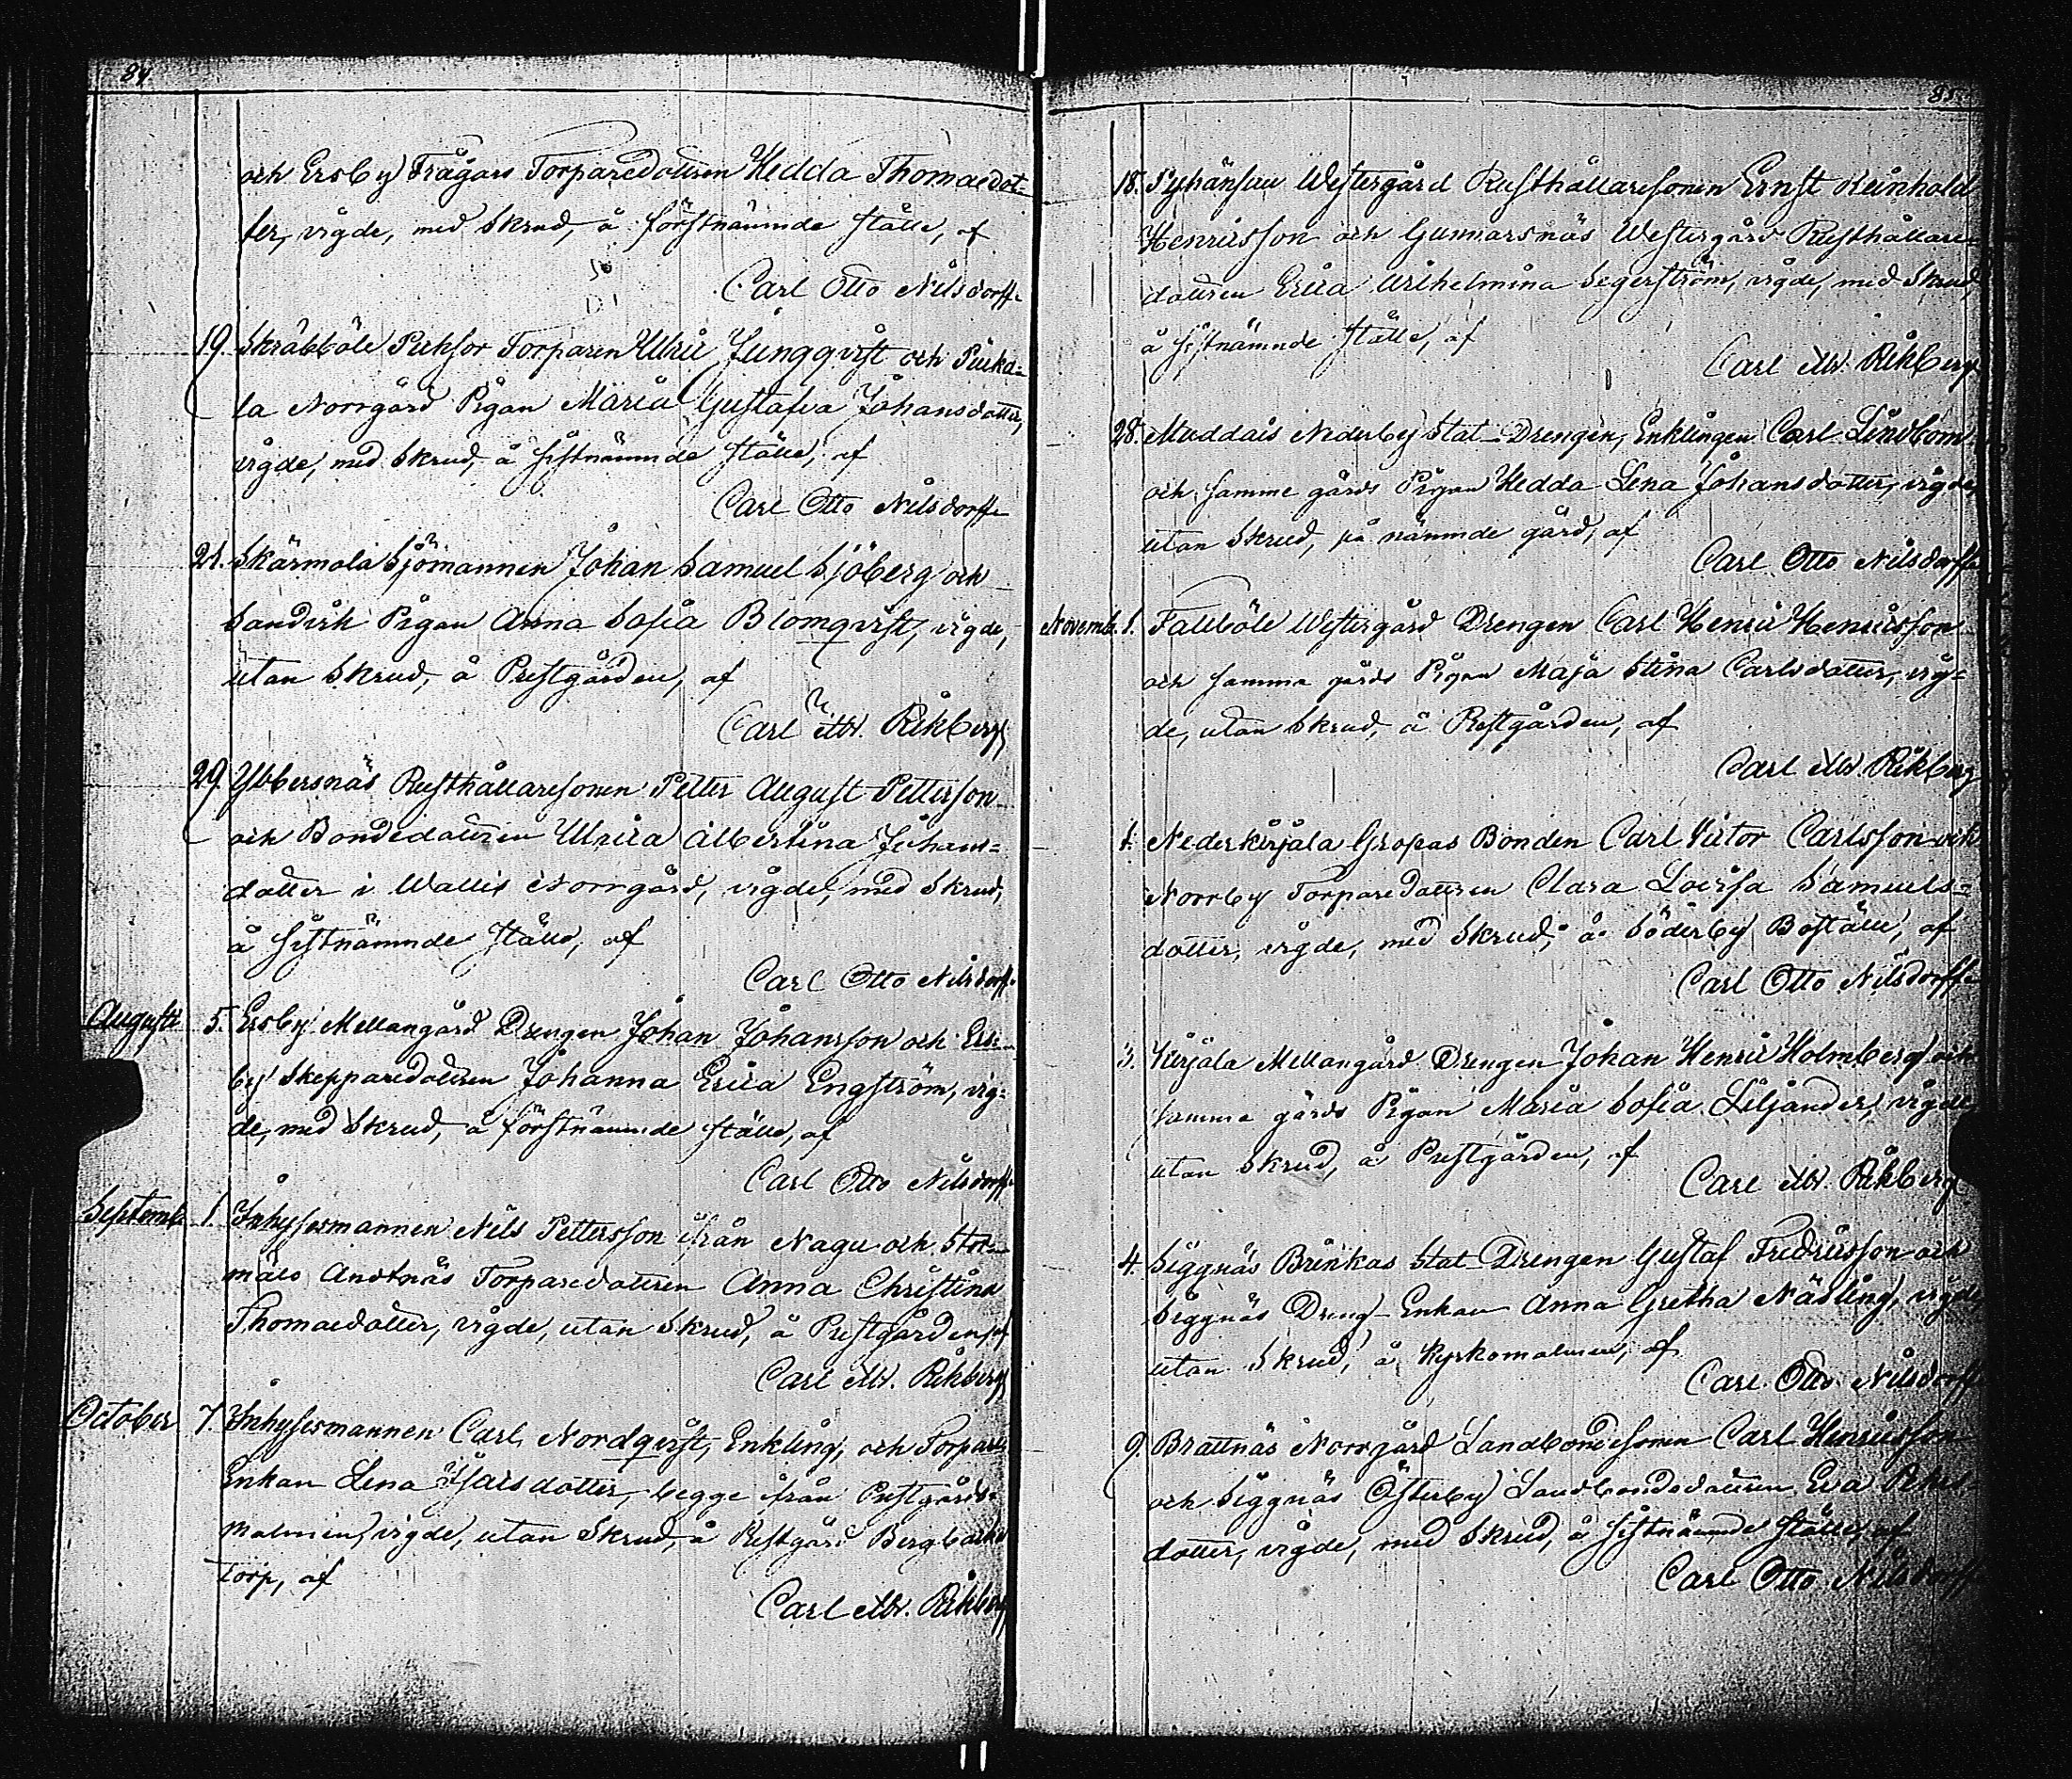 84.
och Ersby Trågars Torparedottren Hedda Thomaedot=
ter, vigde, med Skrud, å förstnämnde ställe, af
Carl Otto Nilsdorff
19. Skräbböle Torparen Ulric Ljungqvist och
la Norrgård Pigan Maria Gustafva Johansdotter,
vigde, med Skrud, å sistnämnde ställe, af
Carl Otto Nilsdorff
21. Skärmola Sjömannen Johan Samuel Sjöberg och
Sandvik Pigan Anna Sofia Blomqvist, vigde,
utan Skrud, å Prestgården, af
Carl Rikberg
29. Ybbersnäs Rusthållaresonen Petter August Petterson
och Bondedottren Ulrica Albertina Johans=
dotter i Wallis Norrgård, vigde, med Skrud,
å sistnämnde ställe, af
Carl Otto Nilsdorff
Augusti 5. Ersby Mellangård Drengen Johan Johansson och Ers=
by Skepparedottren Johanna Erica Engström, vig=
de, med Skrud, å förstnämnde ställe, af
Carl Otto Nilsdorff
Septemb. 1. Inhysesmannen Nils Pettersson ifrån Nagu och Stor=
Torparedottren Anna Christina
Thomaedotter, vigde, utan Skrud, å Prestgården, af
Carl Rikberg
October 7. Inhysesmannen Carl Nordqvist, Enkling, och Torpare
Enkan Lena dotter, begge ifrån Prestgårds=
malmen, vigde, utan Skrud, å Prestgård Bergbacka
Torp, af
Carl Rikberg
85.
18. Pyhänsau Westergård Rusthållaresonen Ernst Reinhold
Henricsson och Gunnarsnäs Westergård Rusthållare=
dottren Erica Wilhelmina Segerström, vigde, med Skrud,
å sistnämnde ställe, af
Carl Rikberg
28. Muddais Nederby Stat-Drengen, Enklingen Carl Lindbom
och samme gårds Pigan Hedda Lena Johansdotter, vigde,
utan Skrud, på nämnde gård, af
Carl Otto Nilsdorff
Novemb. 1. Fallböle Westergård Drengen Carl Henric Henricsson
och samma gårds Pigan Maja Stina Carlsdotter, vig=
de, utan Skrud, å Prestgården, af
Carl Rikberg
1. Nederkirjala Gropas Bonden Carl Victor Carlsson och
Norrby Torparedottren Clara Lovisa Samuels=
dotter, vigde, med Skrud, å Söderby Boställe, af
Carl Otto Nilsdorff
3. Kirjala Mellangård Drengen Johan Henric Holmberg och
samma gårds Pigan Maria Sofia Liljander, vigde
utan Skrud, å Prestgården, af
Carl Rikberg
4. Siggnäs Brinkas Stat-Drengen Gustaf Fredricsson och
Siggnäs Dreng-Enkan Anna Gretha Näsling, vigde,
utan Skrud, å Kyrkomalmen, af
Carl Otto Nilsdorff
9. Brattnäs Norrgård Landbondesonen Carl Henricsson
och Siggnäs Österby Landbondedottren Eva
dotter, vigde, med Skrud, å sistnämnde ställe, af
Carl Otto Nilsdorff